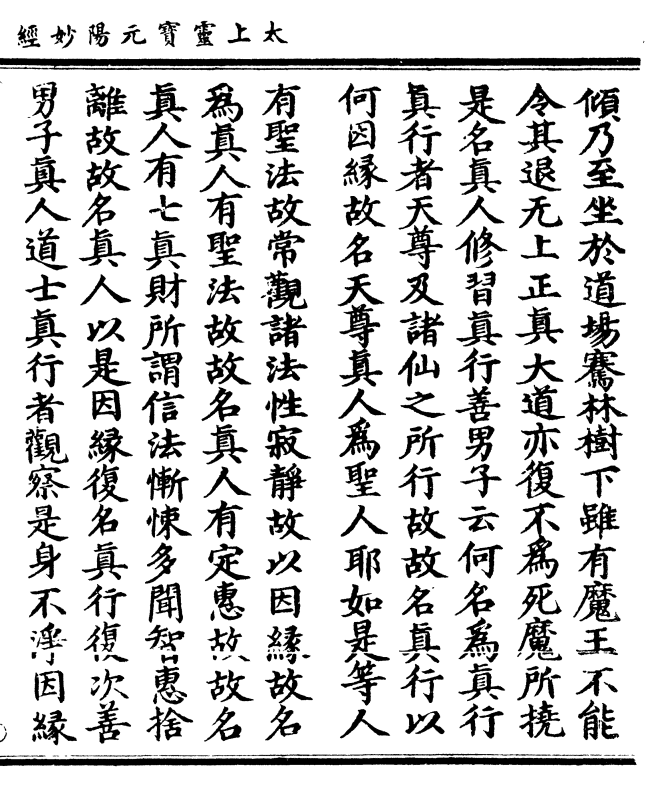 太上靈寶元陽妙經
傾乃至坐於道場騫林樹下雖有魔王不能
令其退无上正真大道亦復不為死魔所撓
是名真人修習真行善男子云何名為真行
真行者天尊及諸仙之所行故故名真行以
何因緣故名天尊真人為聖人耶如是等人
有聖法故常觀諸法性寂靜故以因緣故名
為真人有聖法故故名真人有定惠故故名
真人有七真財所謂信法慚悚多聞智惠捨
離故故名真人以是因緣復名真行復次善
男子真人道士真行者觀察是身不淨因緣